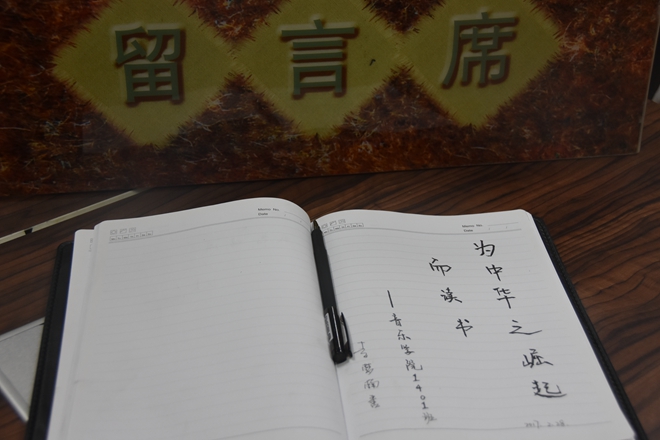 留言席
Memo No.
Date
Memo No.
Date
为中华之崛起
而读书
—音乐学院1401班